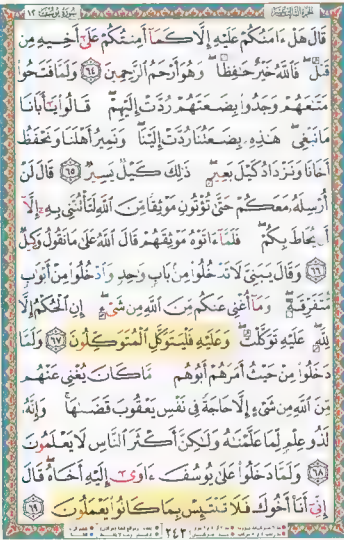 سُورَةُ يُوسُفَ ١٢
قَالَ هَلْ ءَامَنُكُمْ عَلَيْهِ إِلَّا كَمَآ أَمِنتُكُمْ عَلَىٰٓ أَخِيهِ مِن
قَبْلُ ۖ فَٱللَّهُ خَيْرٌ حَٰفِظًا ۖ وَهُوَ أَرْحَمُ ٱلرَّٰحِمِينَ ٦٤ وَلَمَّا فَتَحُوا۟
مَتَٰعَهُمْ وَجَدُوا۟ بِضَٰعَتَهُمْ رُدَّتْ إِلَيْهِمْ ۖ قَالُوا۟ يَٰٓأَبَانَا
مَا نَبْغِى ۖ هَٰذِهِۦ بِضَٰعَتُنَا رُدَّتْ إِلَيْنَا ۖ وَنَمِيرُ أَهْلَنَا وَنَحْفَظُ
أَخَانَا وَنَزْدَادُ كَيْلَ بَعِيرٍ ۖ ذَٰلِكَ كَيْلٌ يَسِيرٌ ٦٥ قَالَ لَنْ
أُرْسِلَهُۥ مَعَكُمْ حَتَّىٰ تُؤْتُونِ مَوْثِقًا مِّنَ ٱللَّهِ لَتَأْتُنَّنِى بِهِۦٓ إِلَّآ
أَن يُحَاطَ بِكُمْ ۖ فَلَمَّآ ءَاتَوْهُ مَوْثِقَهُمْ قَالَ ٱللَّهُ عَلَىٰ مَا نَقُولُ وَكِيلٌ
٦٦ وَقَالَ يَٰبَنِىَّ لَا تَدْخُلُوا۟ مِنۢ بَابٍ وَٰحِدٍ وَٱدْخُلُوا۟ مِنْ أَبْوَٰبٍ
مُّتَفَرِّقَةٍ ۖ وَمَآ أُغْنِى عَنكُم مِّنَ ٱللَّهِ مِن شَىْءٍ ۖ إِنِ ٱلْحُكْمُ إِلَّا
لِلَّهِ ۖ عَلَيْهِ تَوَكَّلْتُ ۖ وَعَلَيْهِ فَلْيَتَوَكَّلِ ٱلْمُتَوَكِّلُونَ ٦٧ وَلَمَّا
دَخَلُوا۟ مِنْ حَيْثُ أَمَرَهُمْ أَبُوهُم مَّا كَانَ يُغْنِى عَنْهُم
مِّنَ ٱللَّهِ مِن شَىْءٍ إِلَّا حَاجَةً فِى نَفْسِ يَعْقُوبَ قَضَىٰهَا ۚ وَإِنَّهُۥ
لَذُو عِلْمٍ لِّمَا عَلَّمْنَٰهُ وَلَٰكِنَّ أَكْثَرَ ٱلنَّاسِ لَا يَعْلَمُونَ
٦٨ وَلَمَّا دَخَلُوا۟ عَلَىٰ يُوسُفَ ءَاوَىٰٓ إِلَيْهِ أَخَاهُ ۖ قَالَ
إِنِّىٓ أَنَا۠ أَخُوكَ فَلَا تَبْتَئِسْ بِمَا كَانُوا۟ يَعْمَلُونَ ٦٩
٢٤٣